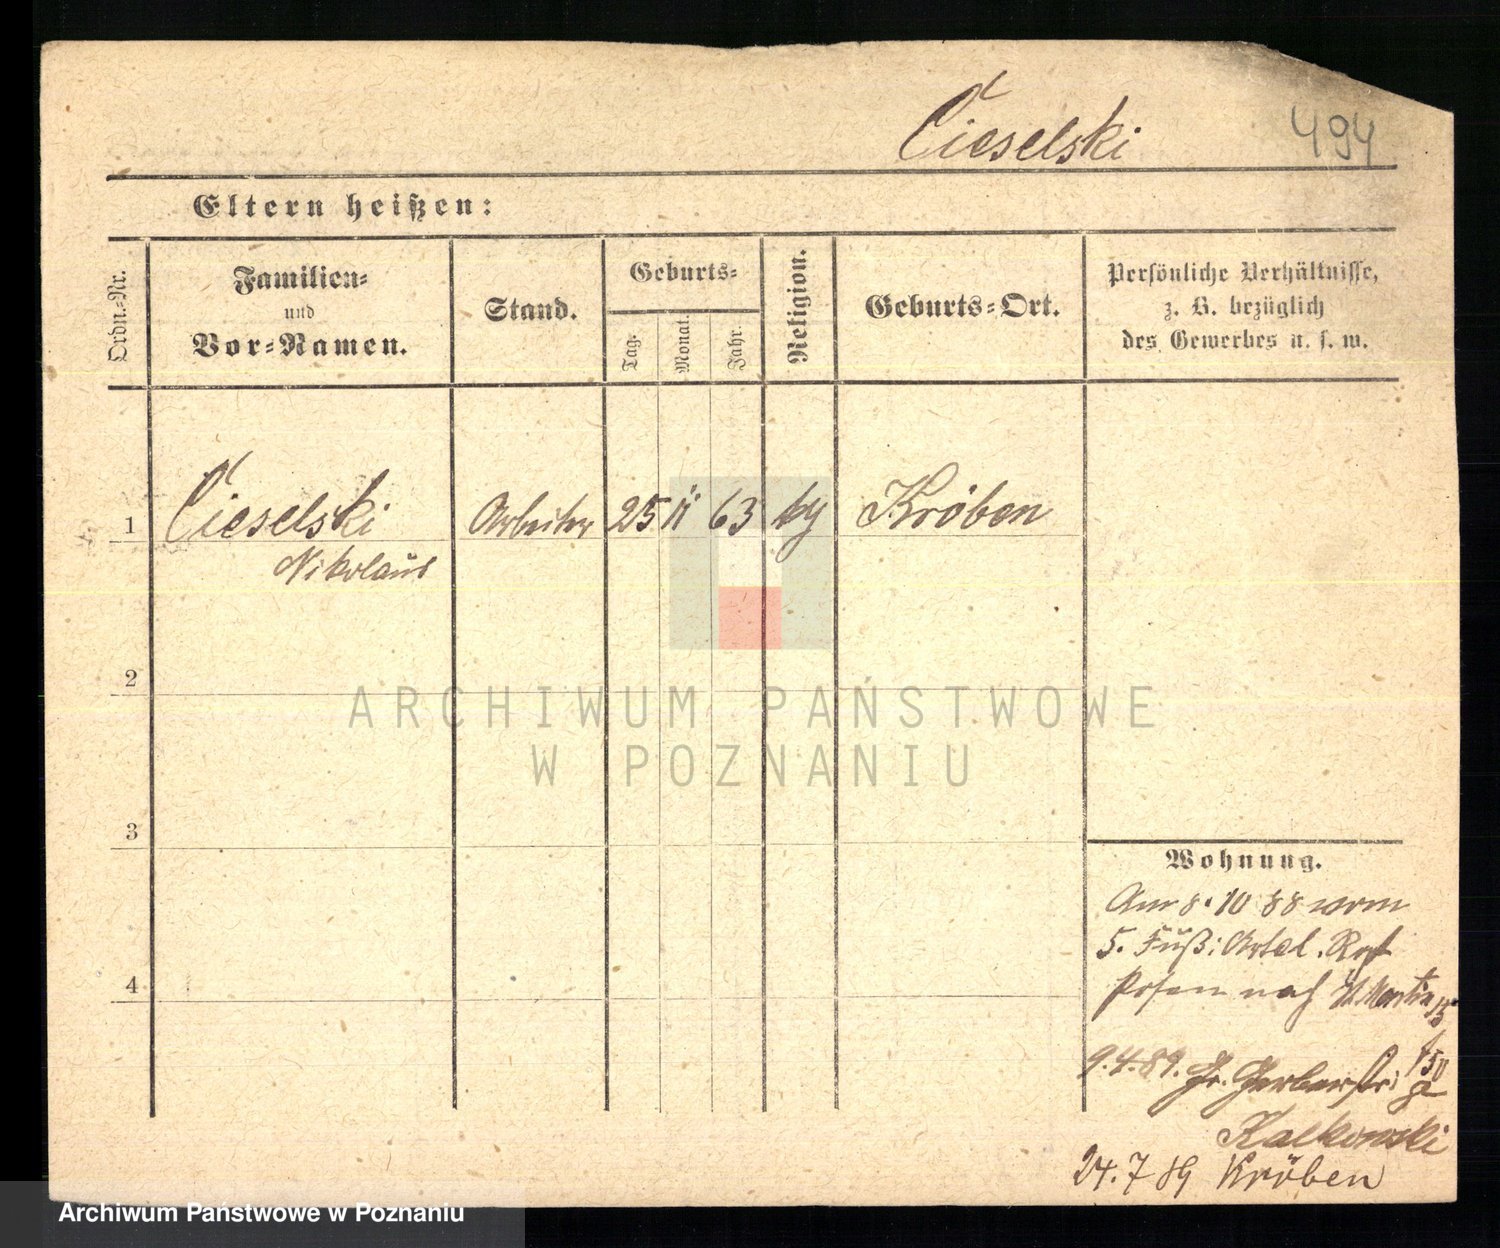 Cieselski 494
Eltern heißen:
Ordn.-Nr.
Familien-
und
Vor-Namen.
Stand.
Geburts-
Tag-
Monat.
Jahr.
Religion.
Geburts-Ort.
Persönliche Verhältnisse,
z. B. bezüglich
des Gewerbes u. s. w.
1 Cieselski Arbeiter 25 11 63 Kröben
Nikolaus
2
3
4
Wohnung.
Am 8. 10 88 vom
5. Fuß: Artel. Rgt
Posen nach St Martin 15
9.4.89. Gr. Gerberstr:
Kalkowski
24.7 89 Kröben
ARCHIWUM PAŃSTWOWE
W POZNANIU
Archiwum Państwowe w Poznaniu